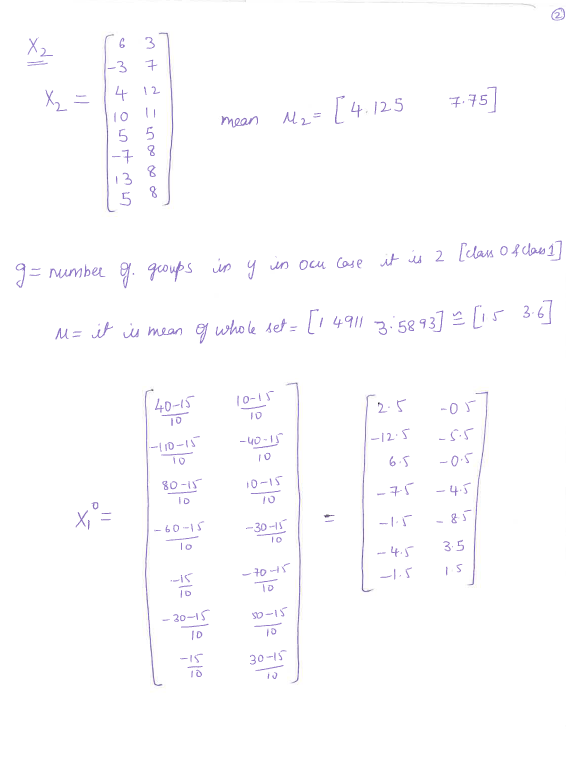 ②
X₂
X₂ = [ 6 3
-3 7
4 12
10 11
5 5
-7 8
13 8
5 8 ]
mean μ₂ = [4.125 7.75]
g = number of. groups in y in our case it is 2 [class 0 & class 1]
μ = it is mean of whole set = [1 4911 3.5893] ≅ [1 5 3.6]
X₁⁰ = [ 40-15/10 10-15/10
-110-15/10 -40-15/10
80-15/10 10-15/10
-60-15/10 -30-15/10
-15/10 -70-15/10
-30-15/10 50-15/10
-15/10 30-15/10 ]
= [ 2.5 -0 5
-12.5 -5.5
6.5 -0.5
-7.5 -4.5
-1.5 -8 5
-4.5 3.5
-1.5 1 5 ]